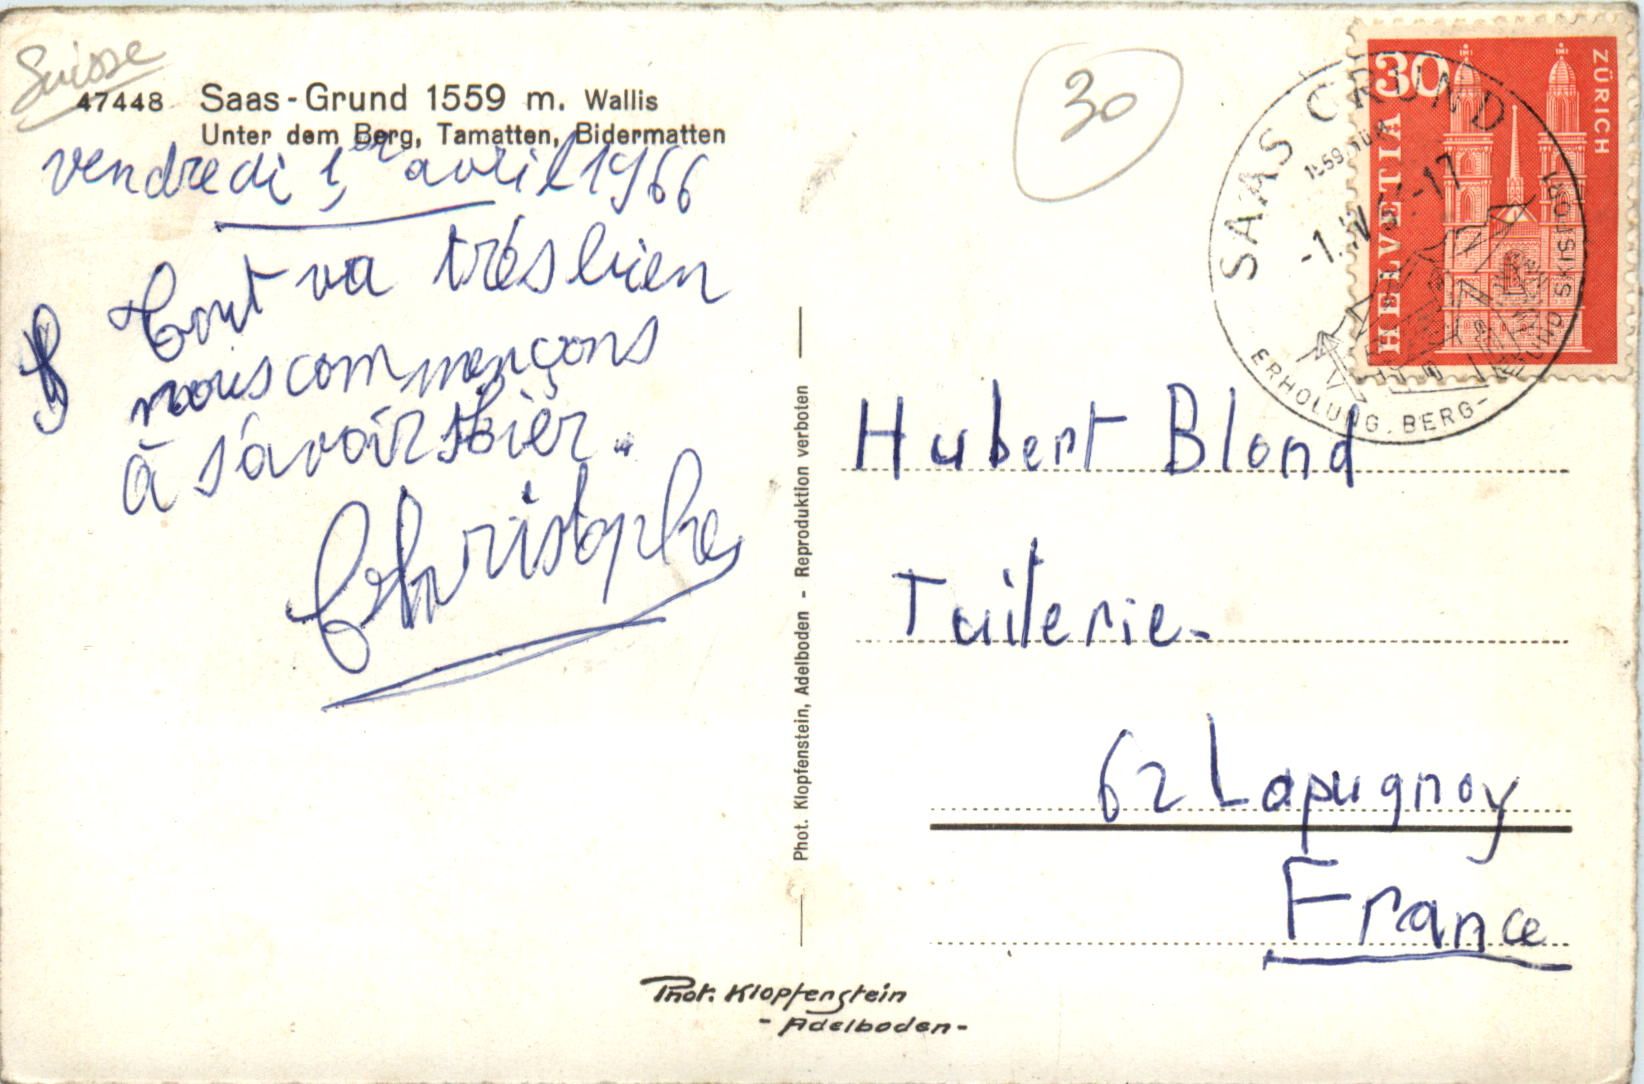 Suisse
47448 Saas-Grund 1559 m. Wallis
Unter dem Berg, Tamatten, Bidermatten
vendredi 1er avril 1966
Tout va trés bien
nous commençons
à savoir skiér.
Christophe
Phot. Klopfenstein, Adelboden - Reproduktion verboten
30
30
HELVETIA
ZÜRICH
SAAS GRUND
1559 m
-1.IV.
-17
ERHOLUNG. BERG-
SKISPORT
Hubert Blond
Tuilerie-
62 Lapugnoy
France
Phot. Klopfenstein
- Adelboden -